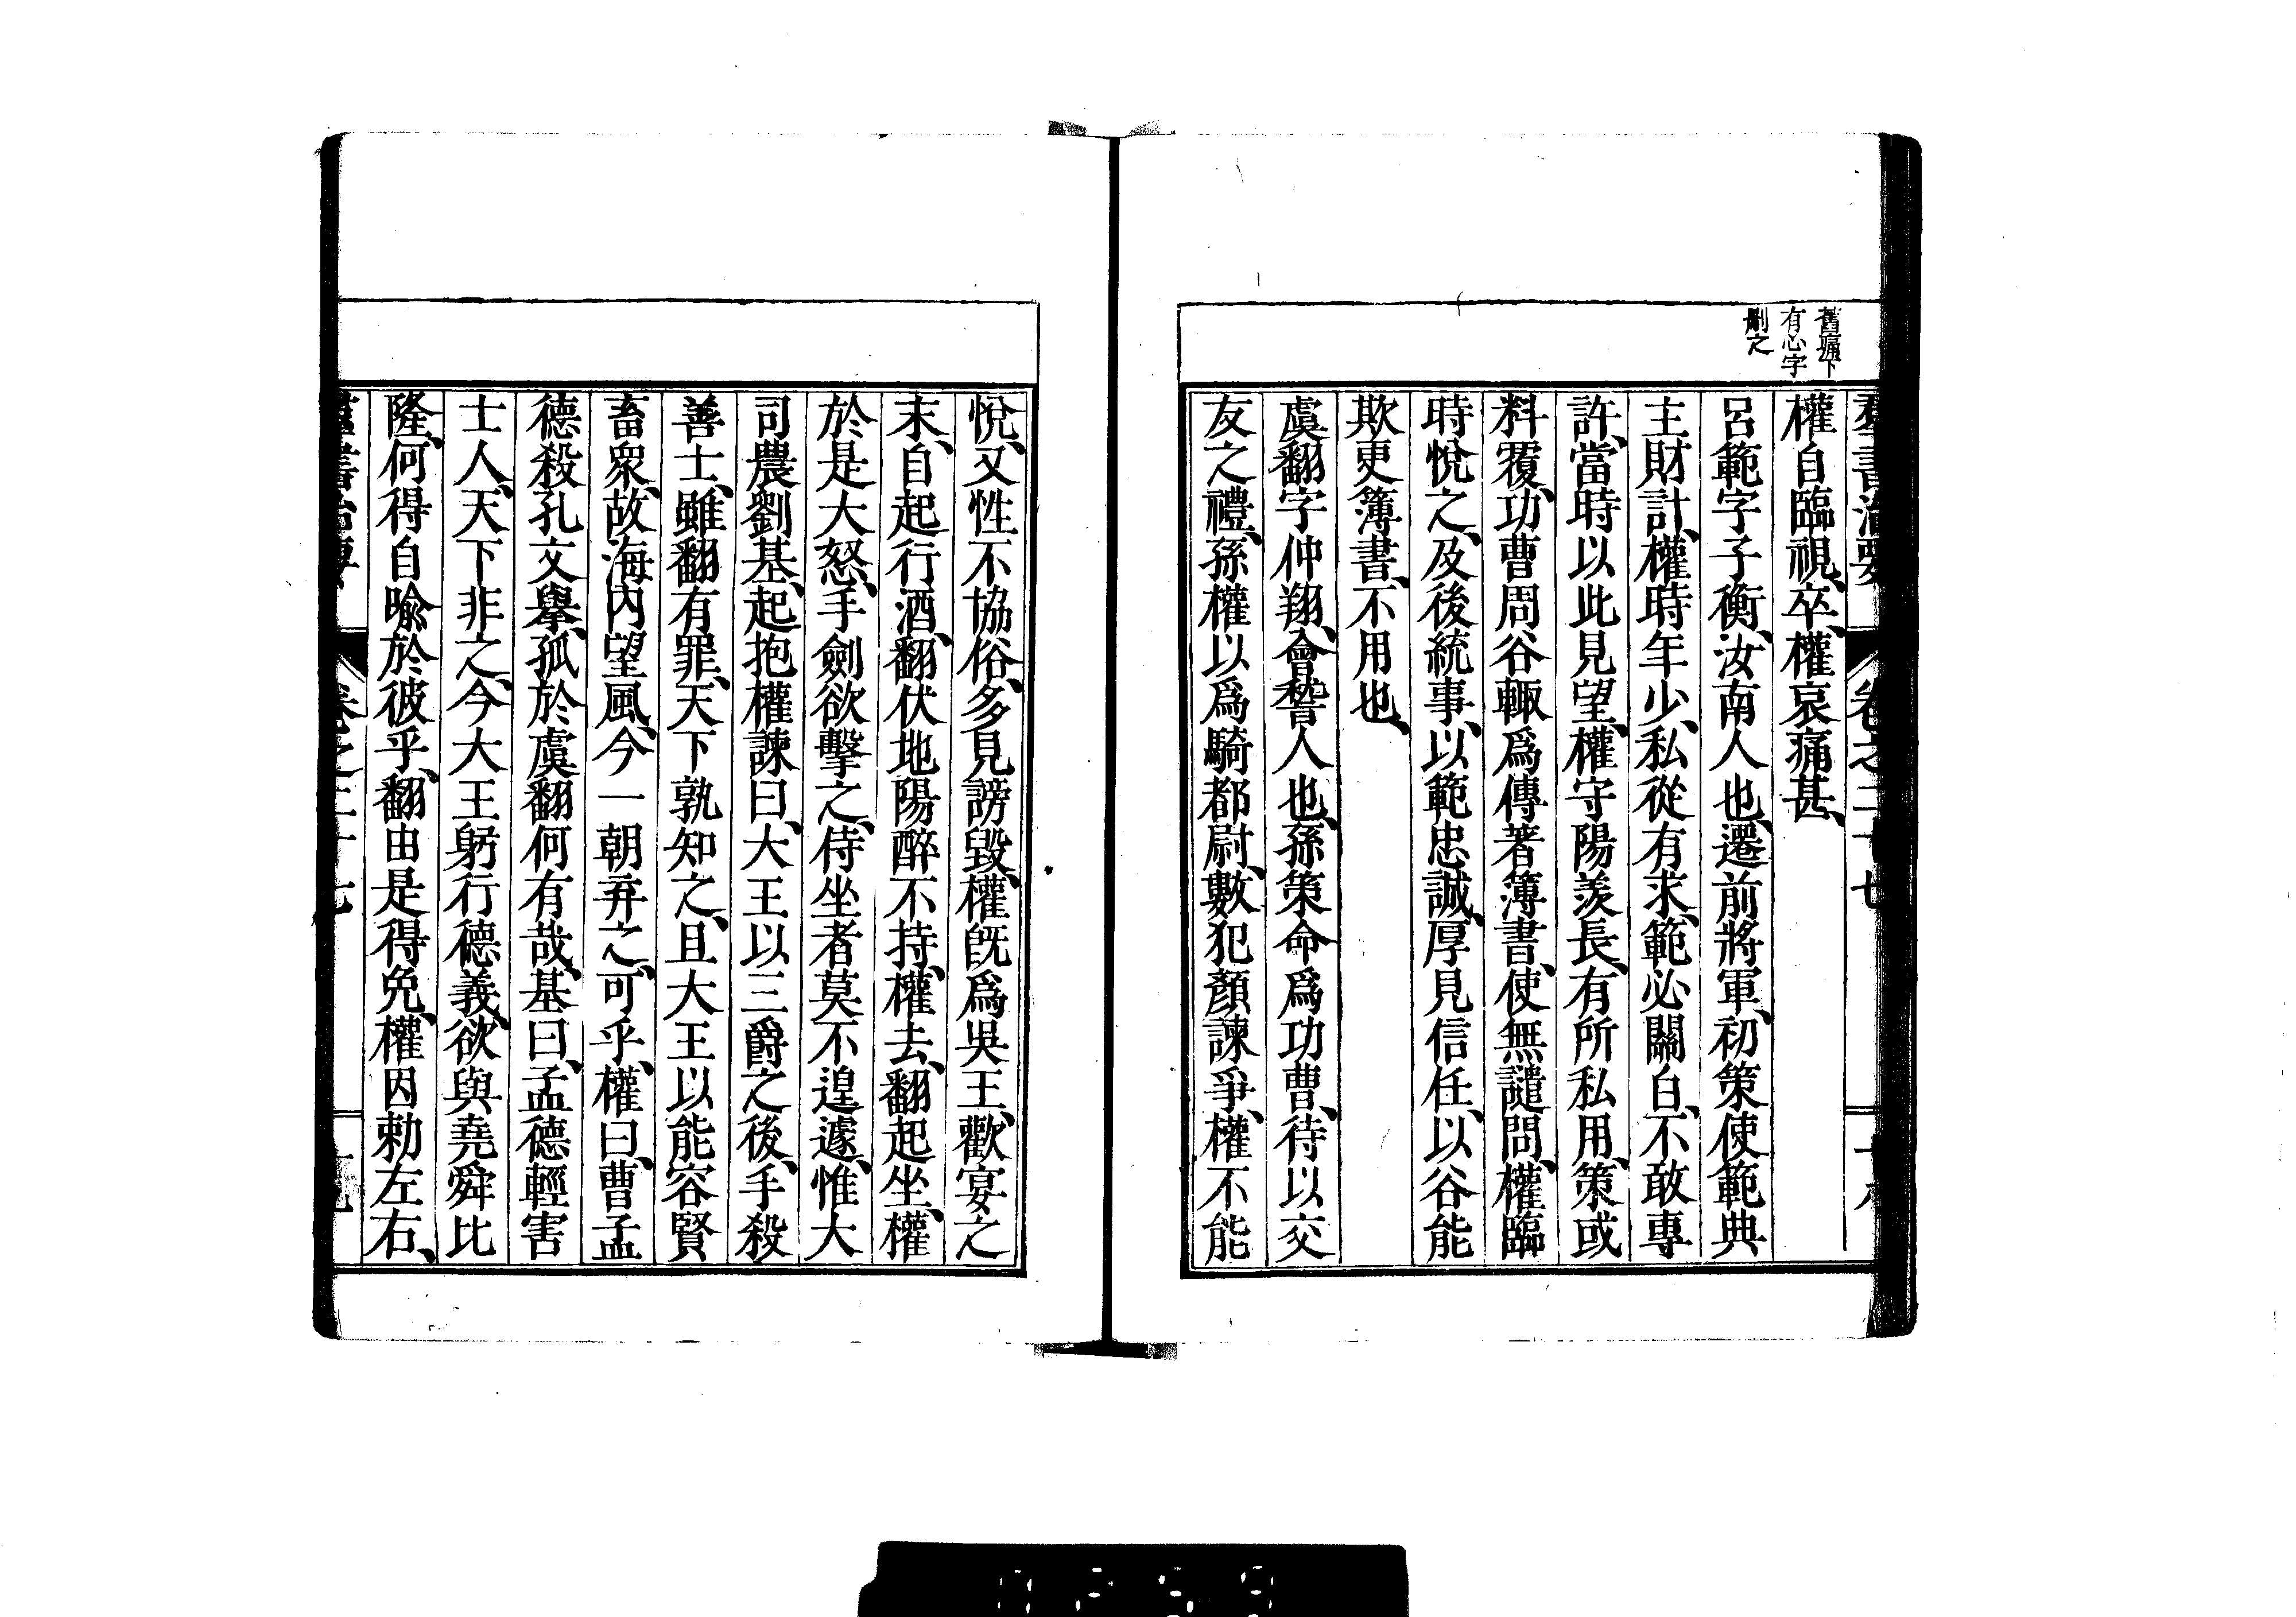 舊痛下
有心字
刪之
羣書治要 卷之二十七 十八
權自臨視、卒、權哀痛甚、
呂範字子衡、汝南人也、遷前將軍、初策使範典
主財計、權時年少、私從有求、範必關白、不敢專
許、當時以此見望、權守陽羨長、有所私用、策或
料覆、功曹周谷輙爲傳著簿書、使無譴問、權臨
時悅之、及後統事、以範忠誠、厚見信任、以谷能
欺更簿書、不用也、
虞翻字仲翔、會稽人也、孫策命爲功曹、待以交
友之禮、孫權以爲騎都尉、數犯顏諫爭、權不能
悅、又性不協俗、多見謗毀、權旣爲吳王、歡宴之
末、自起行酒、翻伏地陽醉不持、權去、翻起坐、權
於是大怒、手劍欲擊之、侍坐者莫不遑遽、惟大
司農劉基、起抱權諫曰、大王以三爵之後、手殺
善士、雖翻有罪、天下孰知之、且大王以能容賢
畜衆、故海內望風、今一朝弃之、可乎、權曰、曹孟
德殺孔文舉、孤於虞翻何有哉、基曰、孟德輕害
士人、天下非之、今大王躬行德義、欲與堯舜比
隆、何得自喩於彼乎、翻由是得免、權因勅左右、
羣書治要 卷之二十七